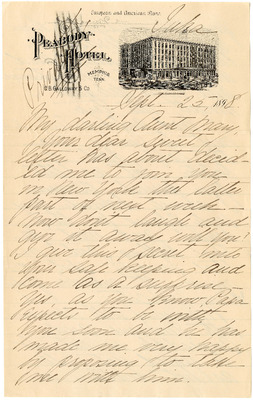 European and American Plans.
PEABODY
HOTEL
MEMPHIS
TENN.
Iuka
Sept. 22, 1898
My darling Aunt Mary,
Your dear sweet
letter has about decid-
ed me to join you
in New York the latter
part of next week—
Now don't laugh and
give it away and you'd
I give this secret into
your safe keeping and
come as a surprise—
Yes, as you know Papa
expects to be with
you soon and he has
made me very happy
by proposing to take
me with him.